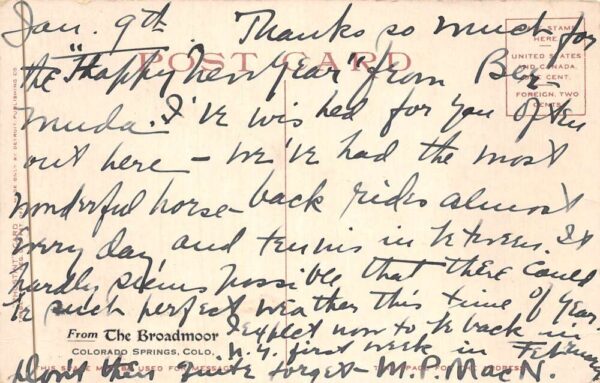 Jan. 9th. Thanks so much for
POST CARD
PLACE STAMP
HERE
UNITED STATES
AND CANADA
ONE CENT
FOREIGN, TWO
CENTS
the "Happy New Year" from Ber-
muda. I've wished for you often
out here – We've had the most
wonderful horse-back rides almost
every day, and tennis in between. It
hardly seems possible that there could
be such perfect weather this time of year.
From The Broadmoor
COLORADO SPRINGS, COLO.
I expect now to be back in
N.Y. first week in February
THIS SPACE MAY BE USED FOR MESSAGE
Don't quite forget – M.P. MacN.